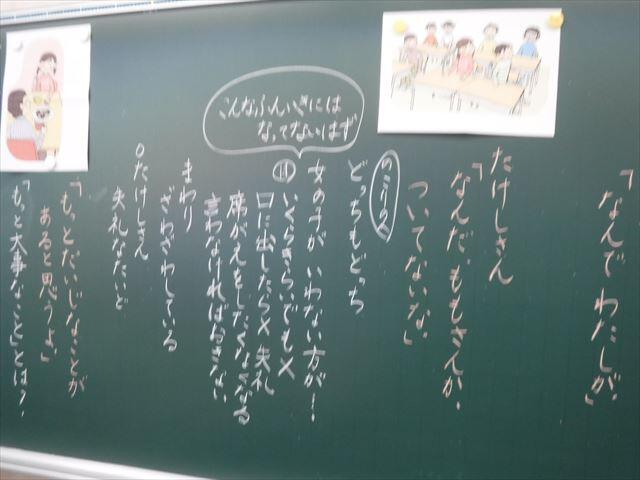 「なんでわたしが」
たけしさん
「なんだ、ももさんか。
ついてないな」
どっちもどっち
こんなふんいきには
なってないはず
女の子が いわない方が…
いくらきらいでも×
口に出したら× 失礼
席がえをしたくなくなる
言わなければおきない
まわり
ざわざわしている
○たけしさん
失礼なたいど
「もっとだいじなことが
あると思うよ」
「もっと大事なこと」とは？